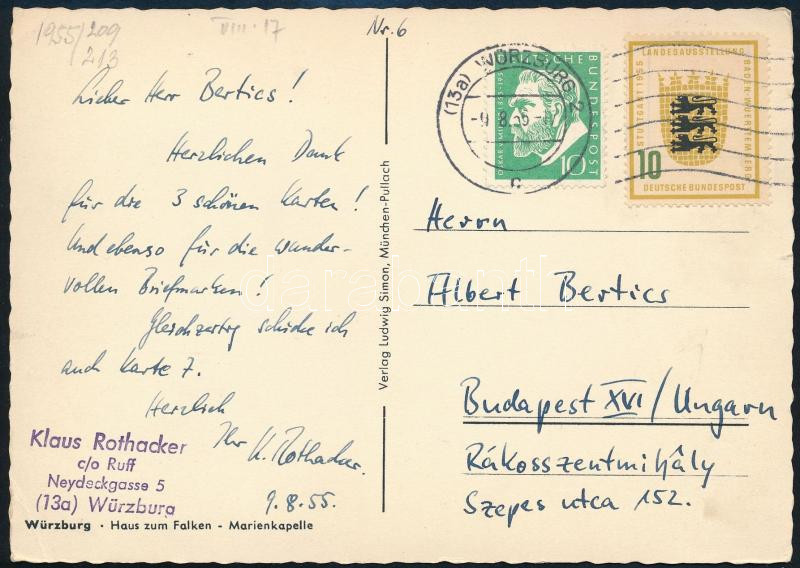 1955/209
/213
VIII. 17
Nr. 6
Lieber Herr Bertics!
Herzlichen Dank
für die 3 schönen Karten!
Und ebenso für die wunder-
vollen Briefmarken!
Gleichzeitig schicke ich
auch Karte 7.
Herzlich
Ihr K. Rothacker.
9.8.55.
Klaus Rothacker
c/o Ruff
Neydeckgasse 5
(13a) Würzburg
Würzburg · Haus zum Falken - Marienkapelle
Verlag Ludwig Simon, München-Pullach
(13a) WÜRZBURG 2
-9.8.55-
c
DEUTSCHE BUNDESPOST
10
LANDESAUSSTELLUNG
BADEN-WUERTTEMBERG
STUTTGART 1955
10
DEUTSCHE BUNDESPOST
Herrn
Albert Bertics
Budapest XVI / Ungarn
Rákosszentmihály
Szepes utca 152.